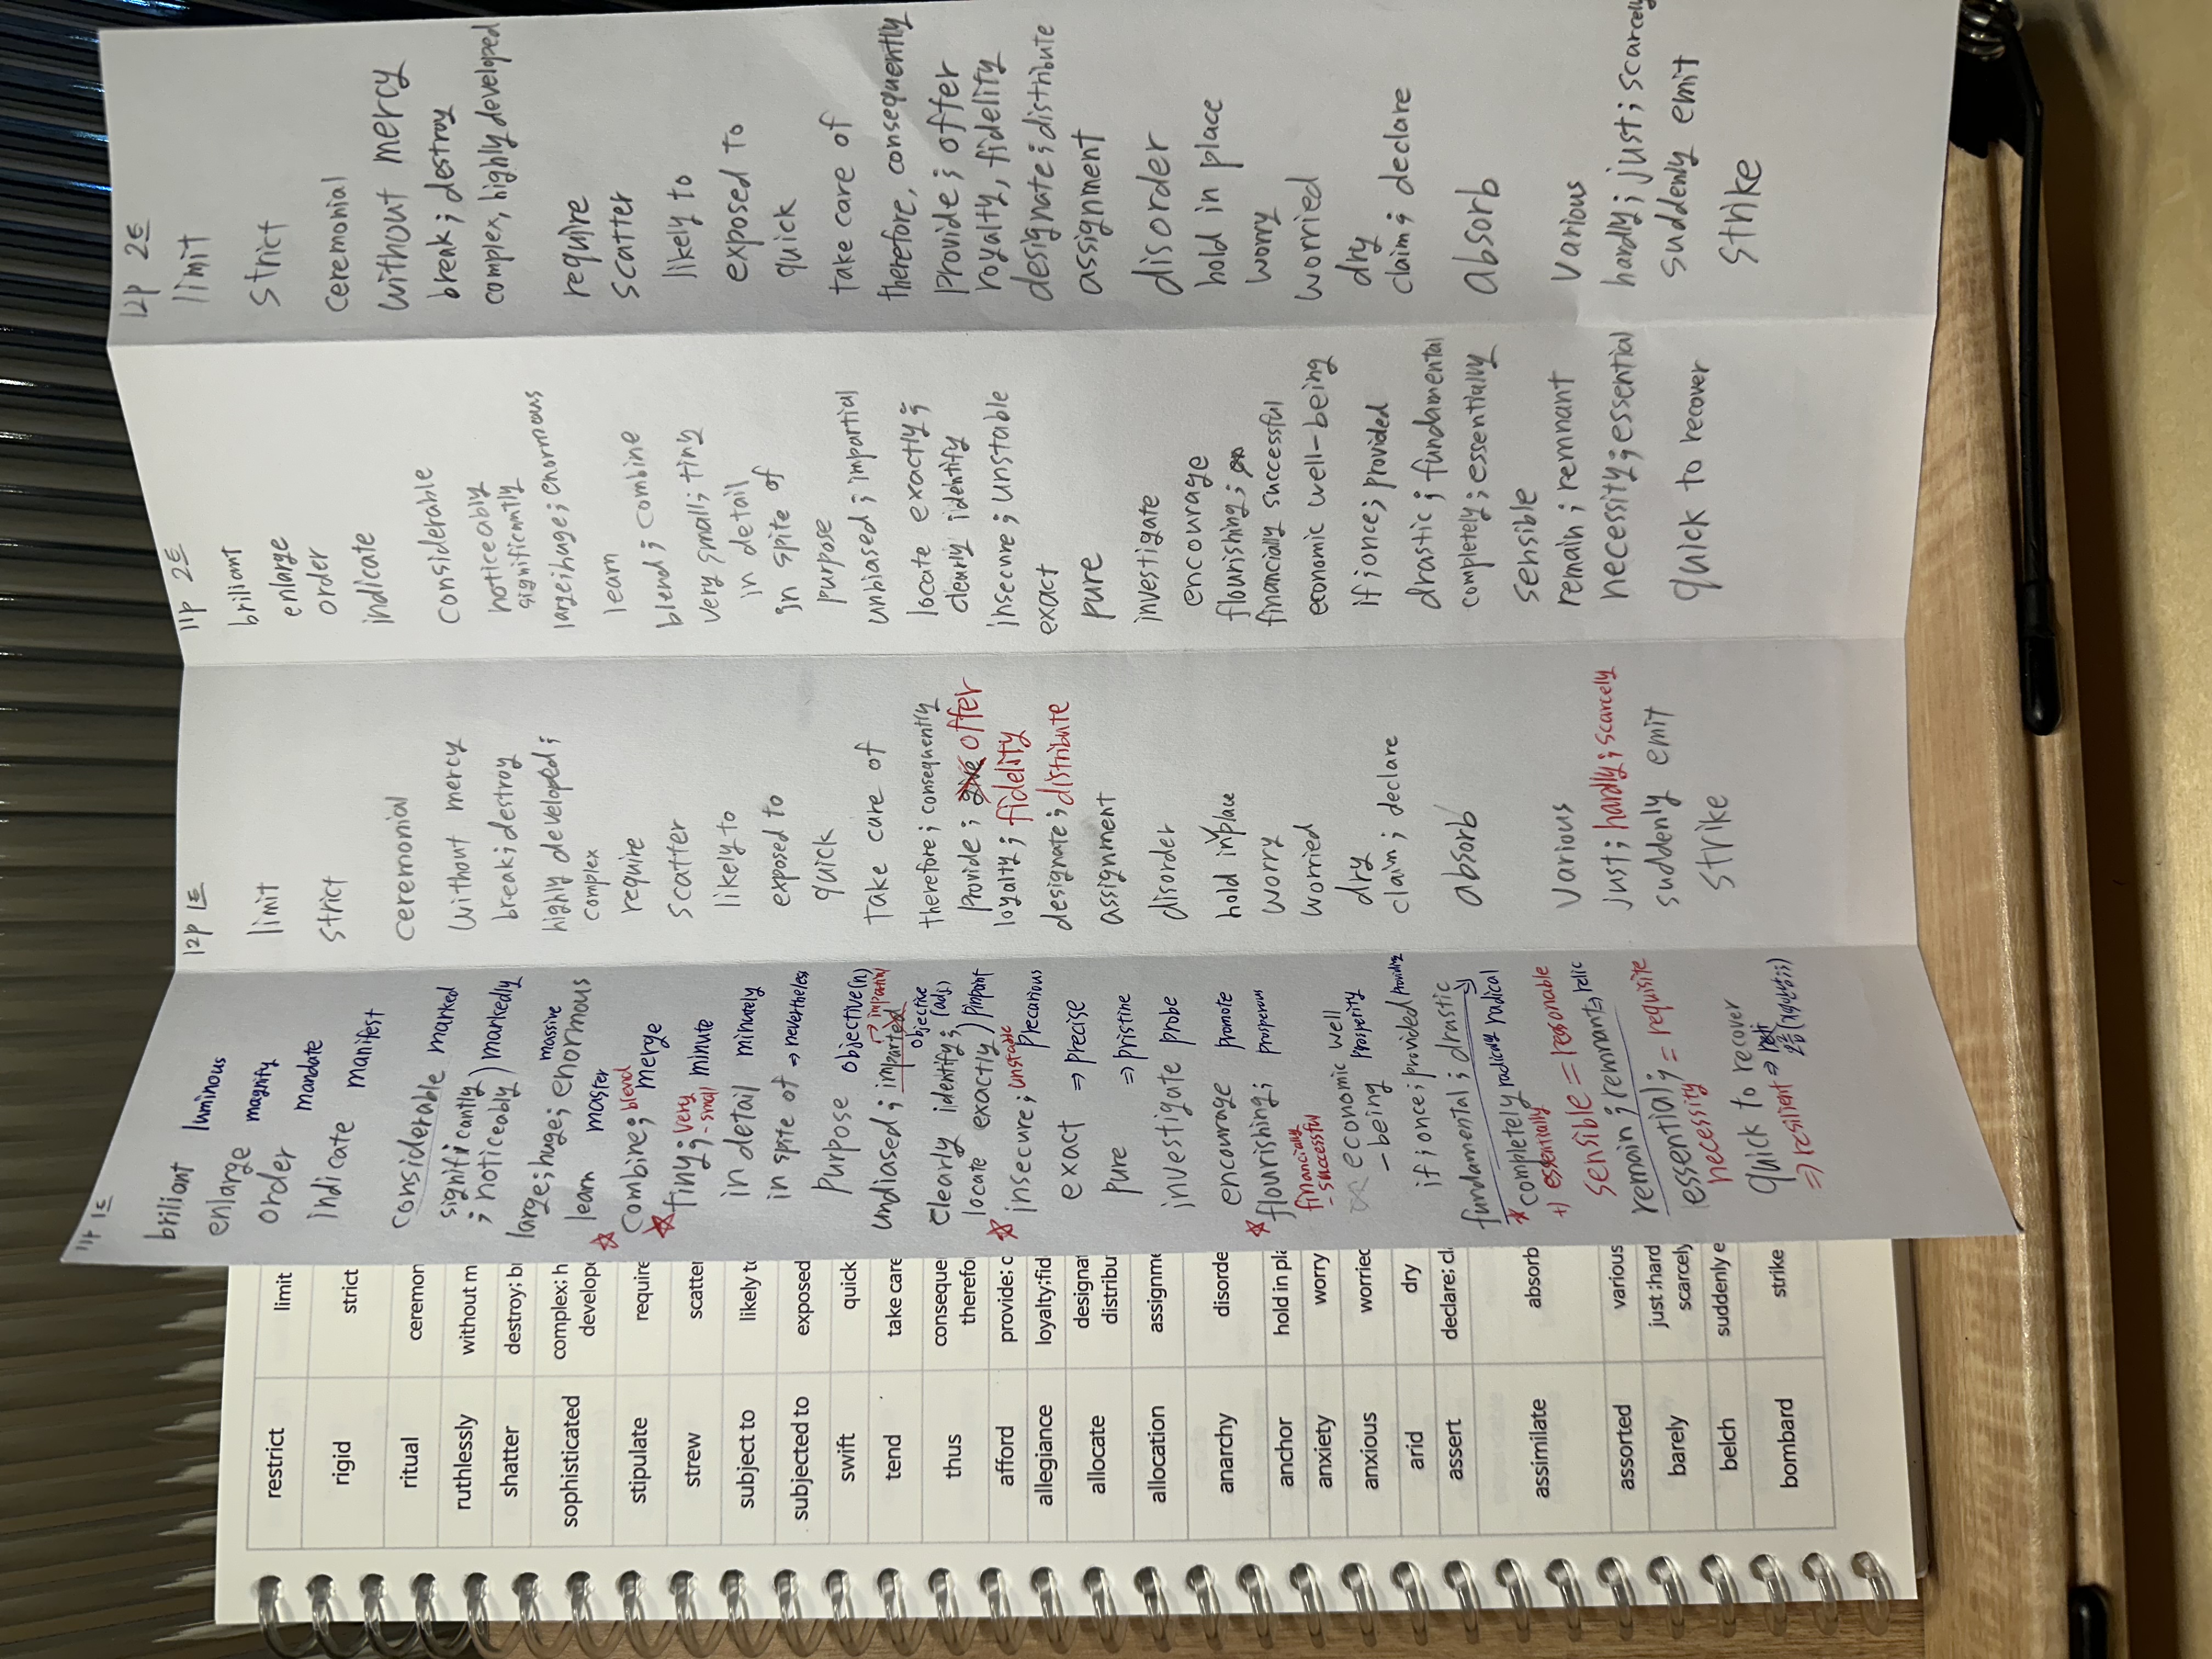 restrict limit
rigid strict
ritual ceremon
ruthlessly without m
shatter destroy; b
sophisticated complex; h
develope
stipulate require
strew scatter
subject to likely to
subjected to exposed
swift quick
tend take care
thus conseque
therefo
afford provide; o
allegiance loyalty;fid
allocate designat
distribu
allocation assignme
anarchy disorde
anchor hold in pla
anxiety worry
anxious worried
arid dry
assert declare; cl
assimilate absorb
assorted various
barely just ;hard
scarcely
belch suddenly e
bombard strike
11p 1회
briliant luminous
enlarge magnify
order mandate
indicate manifest
considerable marked
significantly
; noticeably) markedly
large; huge; enormous massive
learn master
☆ combine; blend merge
☆ tiny; very - small minute
in detail minutely
in spite of ⇒ nevertheless
purpose objective(n)
undiased ; imparted → impartial objective (adj)
clearly identify;
locate exactly) pinpoint
☆ insecure; unstable precarious
exact ⇒ precise
pure ⇒ pristine
investigate probe
encourage promote
☆ flourishing; prosperous
financially
- successful
economic well
- being prosperity
if; once; provided providing
fundamental ; drastic
radical
* completely radically
+) essentially
sensible = reasonable
remain ; remnants ⇒ relic
essential; = requisite
necessity
quick to recover
⇒ resilient ⇒
12p 1회
limit
strict
ceremonial
without mercy
break; destroy
highly developed;
complex
require
scatter
likely to
exposed to
quick
take care of
therefore; consequently
provide; give offer
loyalty; fidelity
designate; distribute
assignment
disorder
hold in place
worry
worried
dry
claim; declare
absorb
various
just; hardly; scarcely
suddenly emit
strike
11p 2회
briliant
enlarge
order
indicate
considerable
noticeably
significanntly
large; huge; enormous
learn
blend; combine
very small; tiny
in detail
in spite of
purpose
unbiased; impartial
locate exactly;
clearly identify
insecure; unstable
exact
pure
investigate
encourage
flourishing;
financially successful
economic well-being
if; once; provided
drastic; fundamental
completely; essentially
sensible
remain; remnant
necessity; essential
quick to recover
12p 2회
limit
strict
ceremonial
without mercy
break; destroy
complex, highly developed
require
scatter
likely to
exposed to
quick
take care of
therefore, consequently
provide; offer
royalty, fidelity
designate; distribute
assignment
disorder
hold in place
worry
worried
dry
claim; declare
absorb
various
hardly; just; scarcely
suddenly emit
strike